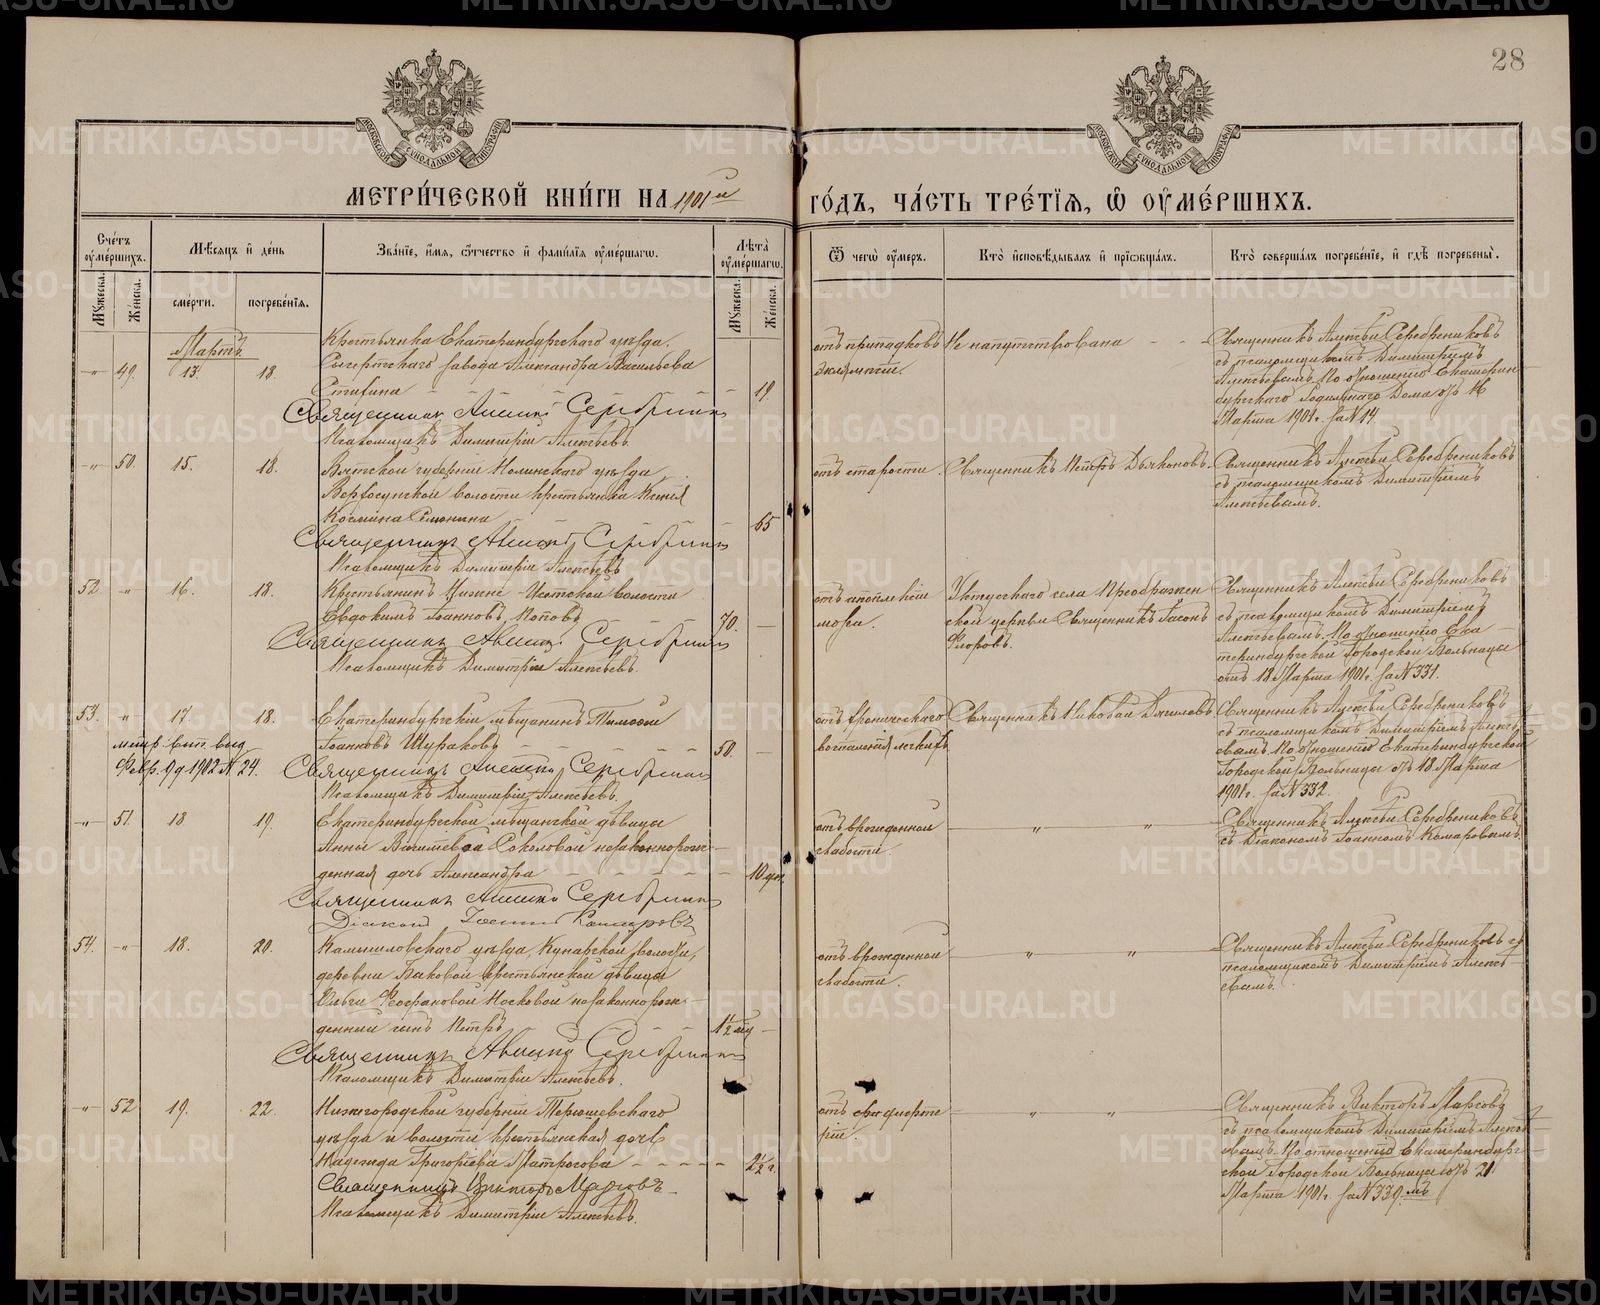 28
МЕТРИ́ЧЕСКОЙ КНИ́ГИ НА 1901й ГО́ДЪ, ЧА́СТЬ ТРЕ́ТІЯ, Ѿ ОУМЕ́РШИХЪ.
Сче́тъ оуме́ршихъ.
Му́жеска.
Же́нска.
Мѣсяцъ и де́нь
сме́рти.
погребе́нія.
Зва́ніе, и́мя, о́тчество и фами́лія оуме́ршагѡ.
Лѣта̀ оуме́ршагѡ.
Му́жеска.
Же́нска.
Ѿ чегѡ̀ оу́меръ.
Кто̀ исповѣ́дывалъ и пріѡбща́лъ.
Кто̀ соверша́лъ погребе́ніе, и гдѣ̀ погребены̀.
Мартъ
-"- 49. 13. 18.
Крестьянка Екатеринбургскаго уѣзда,
Сысертскаго завода Александра Васильева
19
Священникъ Алексій Серебренниковъ
Псаломщикъ Димитрій Алексѣевъ.
отъ припадковъ
эклямпсіи.
Не напутствована
Священникъ Алексѣй Серебрениковъ
съ псаломщикомъ Димитріемъ
Алексѣевымъ. По отношенію Екатерин-
бургскаго Родильнаго Дома отъ 16
Марта 1901г. за №14.
-"- 50. 15. 18.
Вятской губерніи Нолинскаго уѣзда
Верхосунской волости крестьянка Ксенія
Космина
65
Священникъ Алексій Серебренниковъ
Псаломщикъ Димитрій Алексѣевъ
отъ старости.
Священникъ Петръ Дьяконовъ.
Священникъ Алексѣй Серебрениковъ
съ псаломщикомъ Димитріемъ
Алексѣевымъ.
52. -"- 16. 18.
Крестьянинъ Нижне-Исетской волости
Евдокимъ Іоанновъ Поповъ
70.
Священникъ Алексій Серебренниковъ
Псаломщикъ Димитрій Алексѣевъ.
отъ апоплексіи
мозга.
Уктусскаго села Преображен
ской церкви Священникъ Іасонъ
Флоровъ.
Священникъ Алексѣй Серебрениковъ
съ псаломщикомъ Димитріемъ
Алексѣевымъ. По отношенію Ека-
теринбургской Городской Больницы
отъ 18 Марта 1901г. за №331.
53. " 17. 18.
Екатеринбургскій мѣщанинъ Тимофей
Іоанновъ Шураковъ
50.
метр. вып. выд.
Февр. 9 д 1902 № 24.
Священникъ Алексій Серебренниковъ
Псаломщикъ Димитрій Алексѣевъ.
отъ хроническаго
воспаленія легкихъ
Священникъ Николай
Священникъ Алексѣй Серебрениковъ
съ псаломщикомъ Димитріемъ Алексѣ-
евымъ. По отношенію Екатеринбургской
Городской Больницы отъ 18 Марта
1901г. за №332.
-"- 51. 18 19.
Екатеринбургской мѣщанской дѣвицы
Анны Васильевой Соколовой незаконнорож-
денная дочь Александра
10 дн.
Священникъ Алексій Серебренниковъ
Діаконъ Іоаннъ Комаровъ
отъ врожденной
слабости.
Священникъ Алексѣй Серебрениковъ
съ Діакономъ Іоанномъ Комаровымъ
54. -"- 18. 20.
Камышловскаго уѣзда, Кунарской волости,
деревни Быковой крестьянской дѣвицы
Ольги Феофановой Носковой незаконнорож-
денный сынъ Петръ
1½ мѣс.
Священникъ Алексій Серебренниковъ
Псаломщикъ Димитрій Алексѣевъ.
отъ врожденной
слабости.
Священникъ Алексѣй Серебрениковъ съ
псаломщикомъ Димитріемъ Алексѣ-
евымъ.
" 52 19. 22.
Нижегородской губерніи
уѣзда и волости крестьянская дочь
Надежда Григорьева
2½ г.
Священникъ Викторъ Марковъ
Псаломщикъ Димитрій Алексѣевъ.
отъ дифте
ріи.
Священникъ Викторъ Марковъ
съ псаломщикомъ Димитріемъ Алексѣ-
евымъ. По отношенію Екатеринбург-
ской Городской Больницы отъ 21
Марта 1901г. за №339.мъ
METRIKI.GASO-URAL.RU